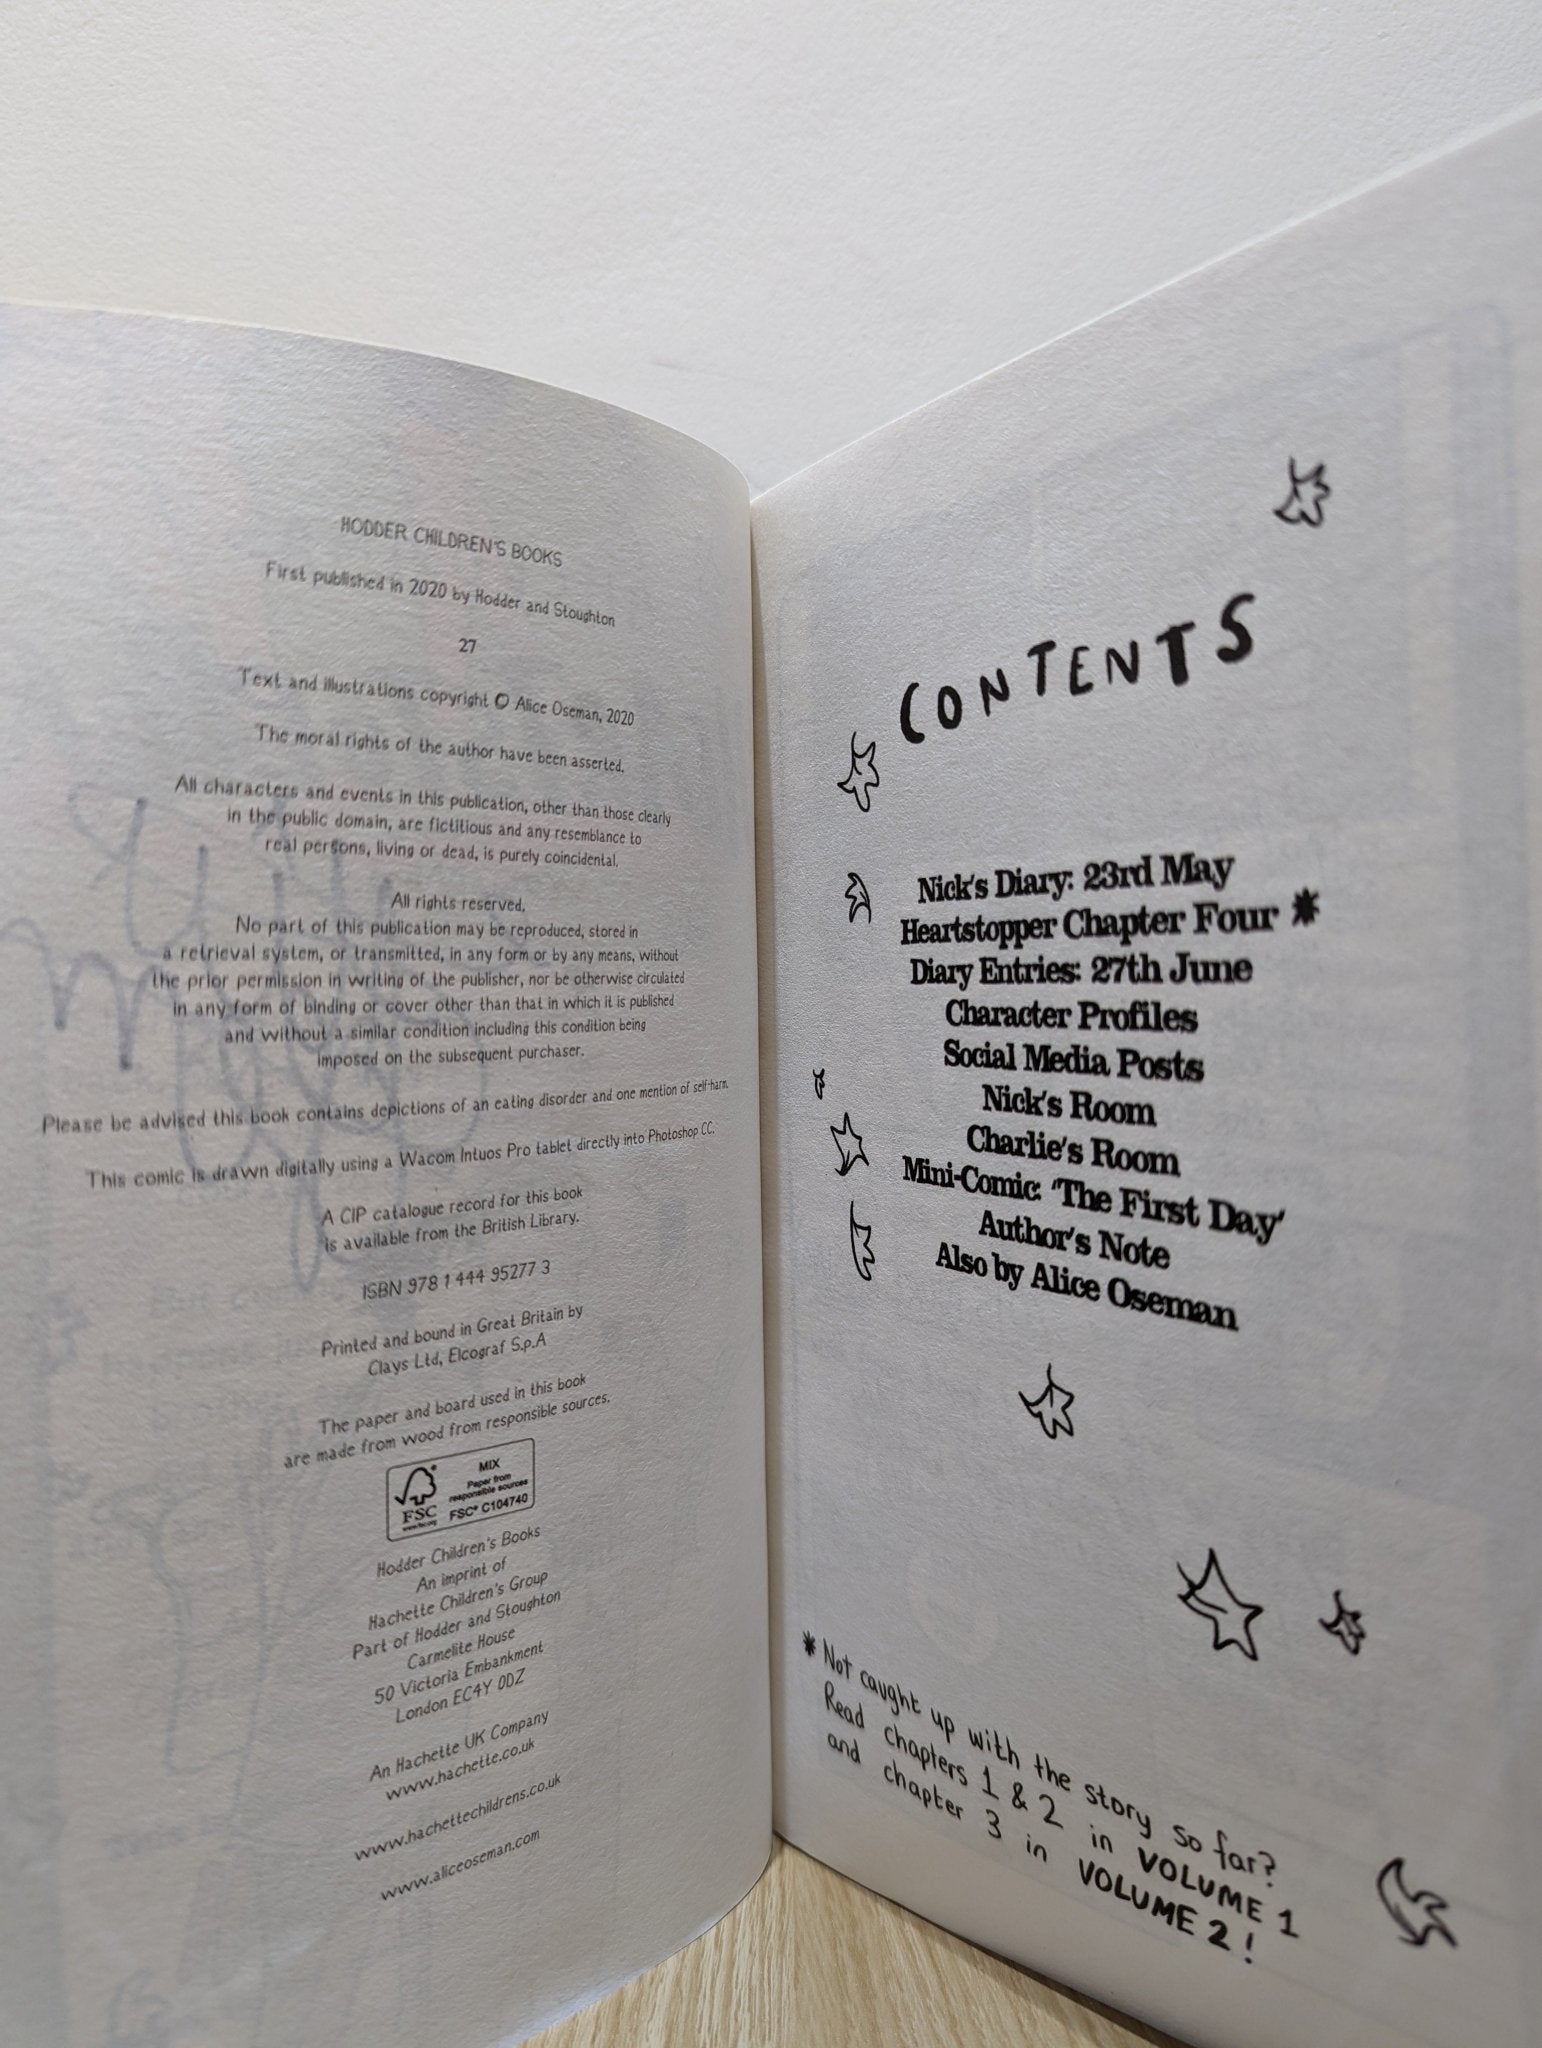 HODDER CHILDREN'S BOOKS
First published in 2020 by Hodder and Stoughton
27
Text and illustrations copyright © Alice Oseman, 2020
The moral rights of the author have been asserted.
All characters and events in this publication, other than those clearly
in the public domain, are fictitious and any resemblance to
real persons, living or dead, is purely coincidental.
All rights reserved.
No part of this publication may be reproduced, stored in
a retrieval system, or transmitted, in any form or by any means, without
the prior permission in writing of the publisher, nor be otherwise circulated
in any form of binding or cover other than that in which it is published
and without a similar condition including this condition being
imposed on the subsequent purchaser.
Please be advised this book contains depictions of an eating disorder and one mention of self-harm.
This comic is drawn digitally using a Wacom Intuos Pro tablet directly into Photoshop CC.
A CIP catalogue record for this book
is available from the British Library.
ISBN 978 1 444 95277 3
Printed and bound in Great Britain by
Clays Ltd, Elcograf S.p.A
The paper and board used in this book
are made from wood from responsible sources.
MIX
Paper from
responsible sources
FSC® C104740
FSC
www.fsc.org
Hodder Children's Books
An imprint of
Hachette Children's Group
Part of Hodder and Stoughton
Carmelite House
50 Victoria Embankment
London EC4Y 0DZ
An Hachette UK Company
www.hachette.co.uk
www.hachettechildrens.co.uk
www.aliceoseman.com
CONTENTS
Nick's Diary: 23rd May
Heartstopper Chapter Four *
Diary Entries: 27th June
Character Profiles
Social Media Posts
Nick's Room
Charlie's Room
Mini-Comic: 'The First Day'
Author's Note
Also by Alice Oseman
* Not caught up with the story so far?
Read chapters 1 & 2 in VOLUME 1
and chapter 3 in VOLUME 2!